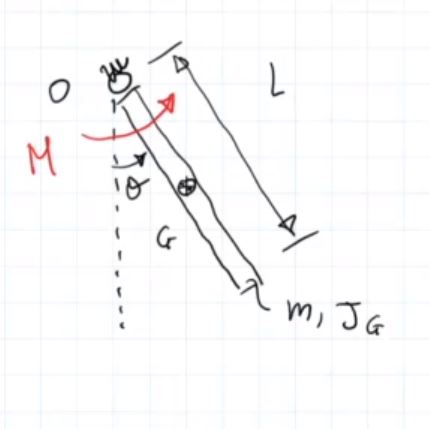 O
L
M
θ
G
m, J_G